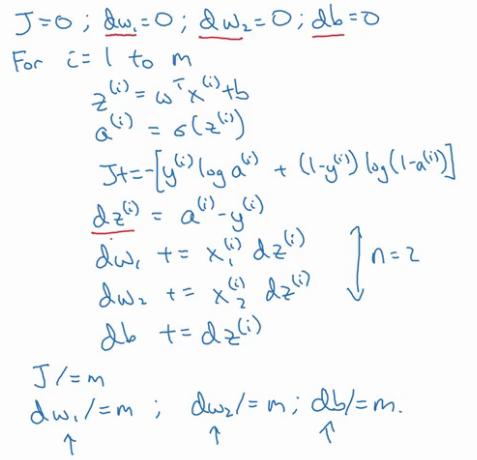 J=0 ; dw₁=0 ; dw₂=0 ; db=0
For i=1 to m
z⁽ⁱ⁾=ωᵀx⁽ⁱ⁾+b
a⁽ⁱ⁾=σ(z⁽ⁱ⁾)
J+=-[y⁽ⁱ⁾ log a⁽ⁱ⁾ + (1-y⁽ⁱ⁾) log(1-a⁽ⁱ⁾)]
dz⁽ⁱ⁾ = a⁽ⁱ⁾-y⁽ⁱ⁾
dw₁ += x₁⁽ⁱ⁾ dz⁽ⁱ⁾
dw₂ += x₂⁽ⁱ⁾ dz⁽ⁱ⁾
n=2
db += dz⁽ⁱ⁾
J/=m
dw₁/=m ; dw₂/=m ; db/=m.